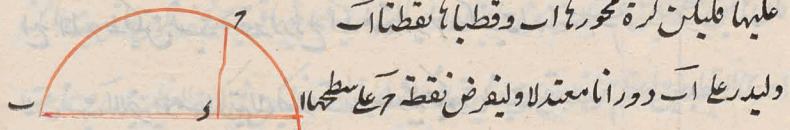 عليها فليكن كرة محورها اب وقطباها نقطتا اب
وليدر على اب دورانا معتدلا وليفرض نقطة ح على سطحها
ح
ب
ء
ا